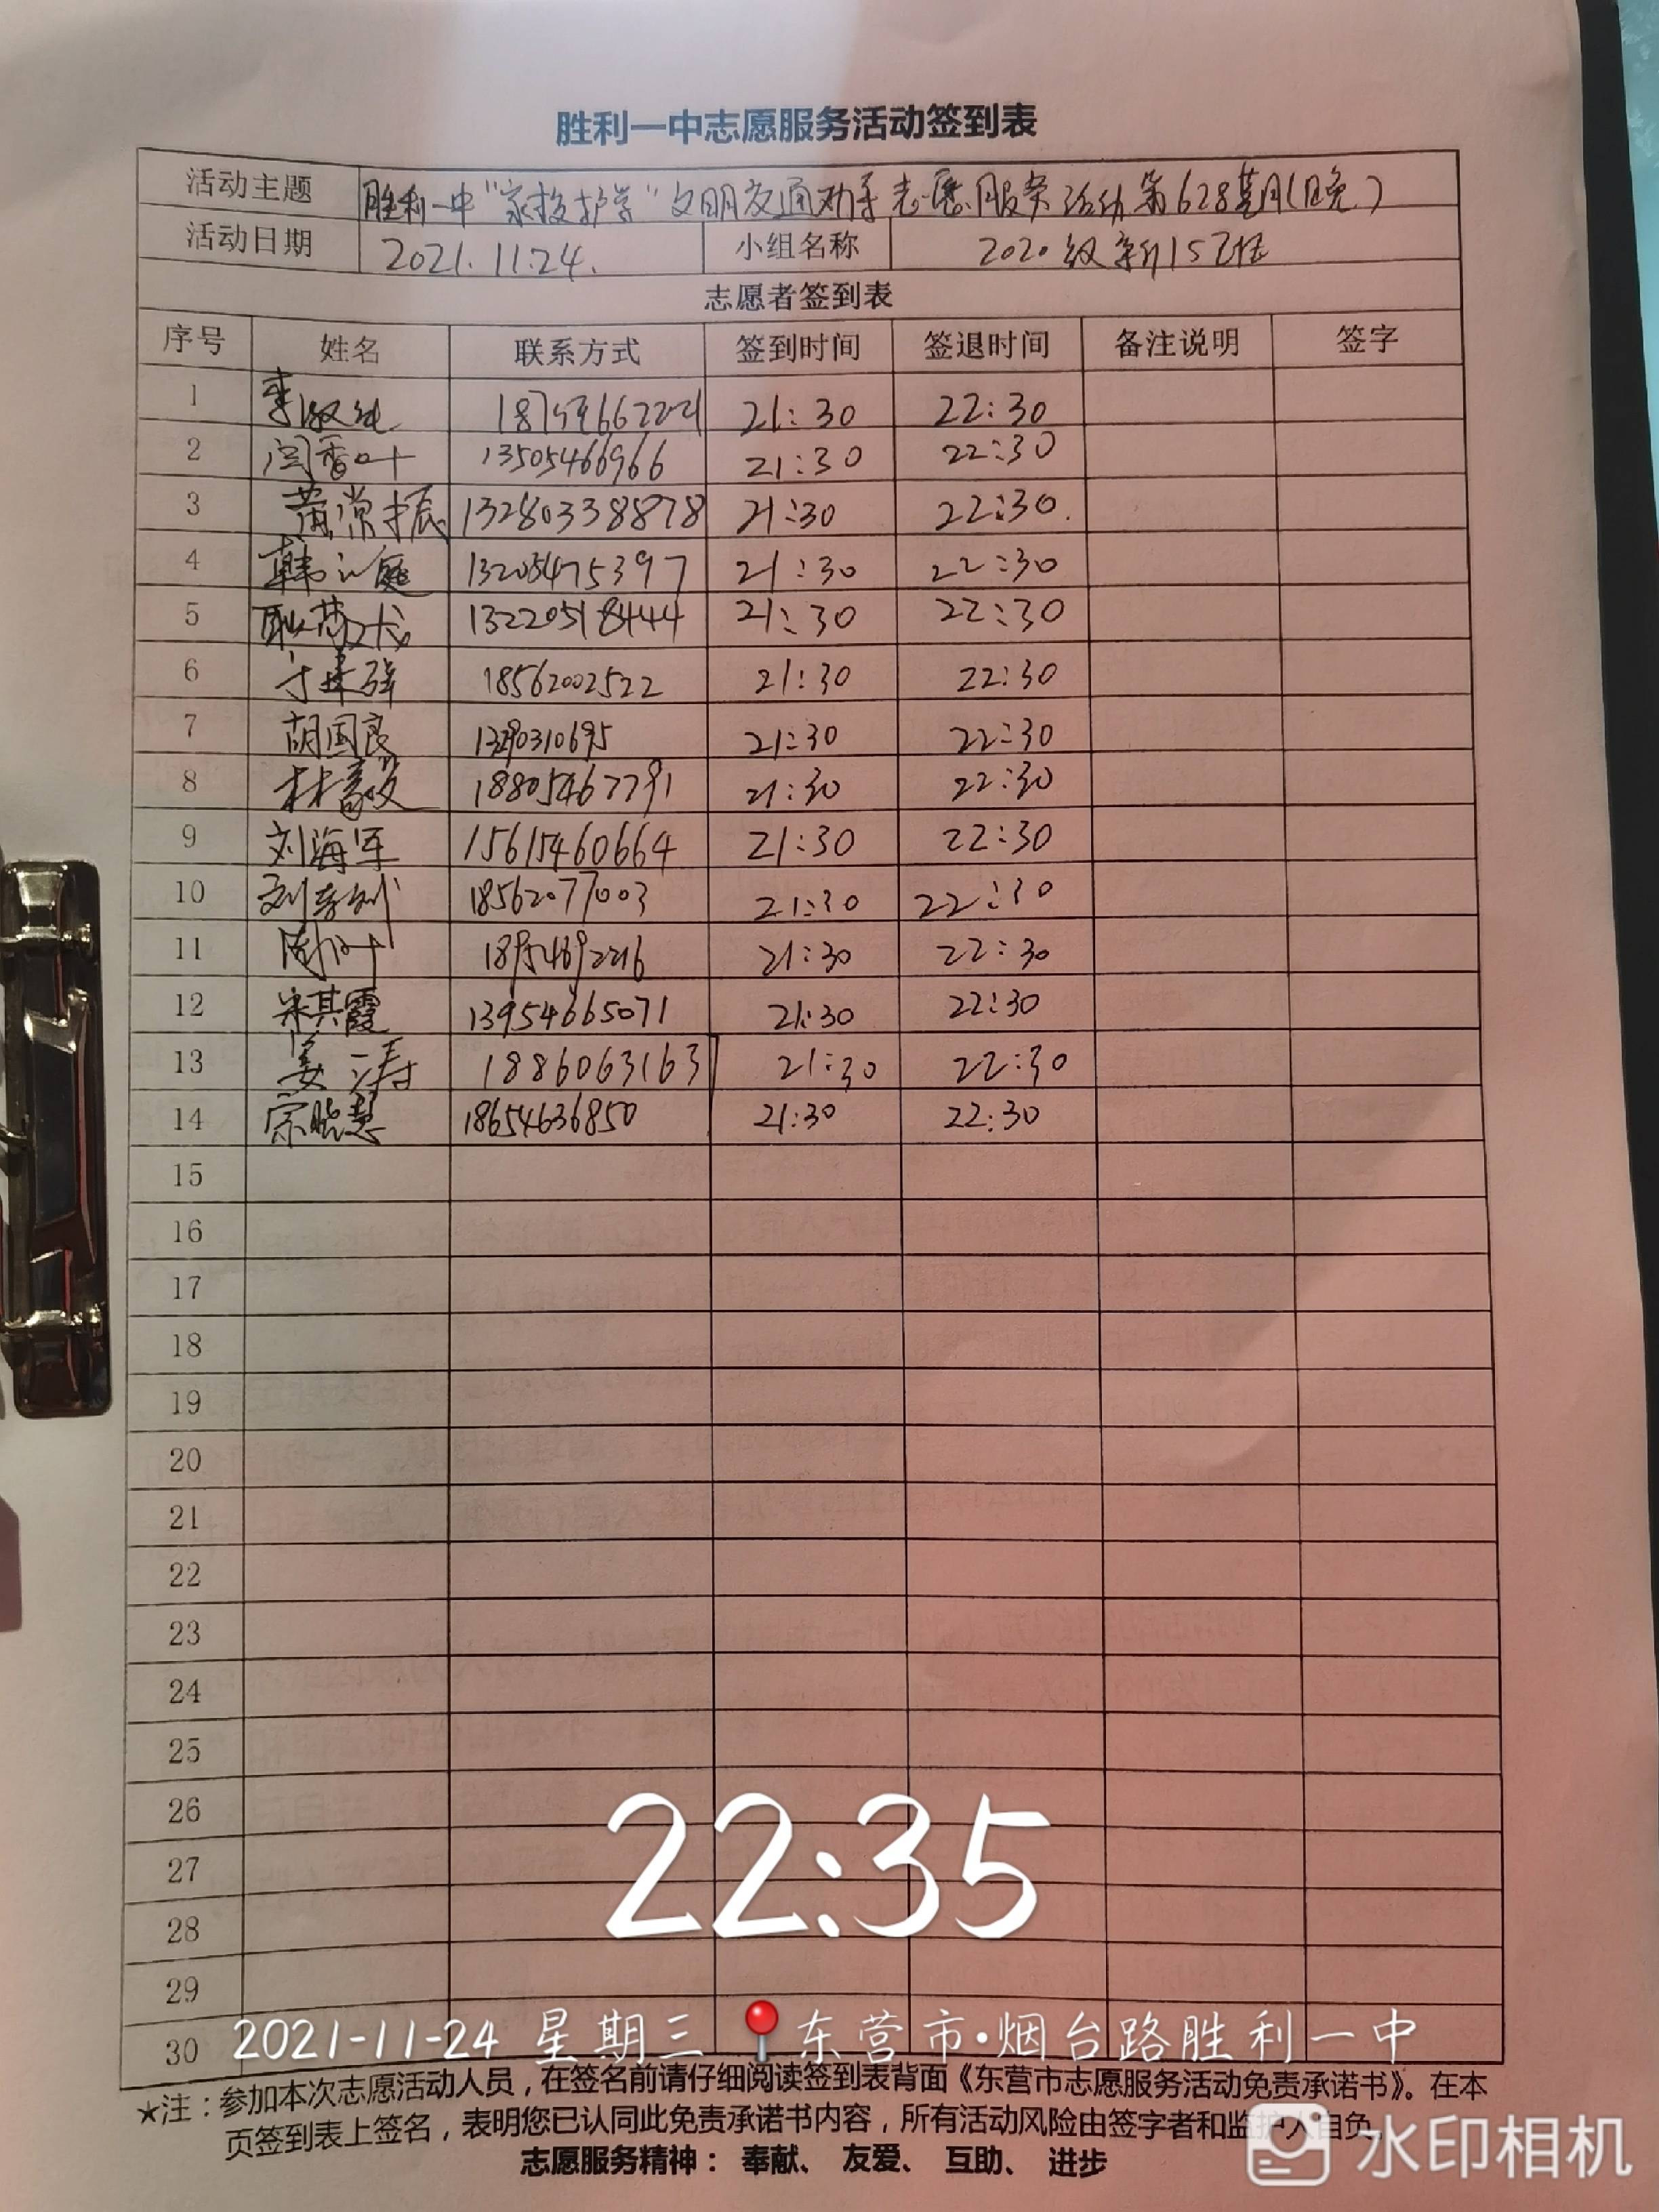 胜利一中志愿服务活动签到表
活动主题 胜利一中“家校护学”文明交通劝导志愿服务活动第628期(晚)
活动日期 2021.11.24. 小组名称 2020级新15班
志愿者签到表
序号 姓名 联系方式 签到时间 签退时间 备注说明 签字
1 李淑红 21:30 22:30
2 闫香叶 13505466966 21:30 22:30
3 常振 13280338878 21:30 22:30.
4 韩 庭 13205475397 21:30 22:30
5 耿 13220518444 21:30 22:30
6 建强 18562002522 21:30 22:30
7 胡国良 21:30 22:30
8 林 18805467791 21:30 22:30
9 刘海军 15615460664 21:30 22:30
10 刘 18562077003 21:30 22:30
11 21:30 22:30
12 宋其霞 13954665071 21:30 22:30
13 姜涛 1886063163 21:30 22:30
14 宗晓慧 18654636850 21:30 22:30
15
16
17
18
19
20
21
22
23
24
25
26
27
28
29
30
22:35
2021-11-24 星期三 东营市·烟台路胜利一中
★注：参加本次志愿活动人员，在签名前请仔细阅读签到表背面《东营市志愿服务活动免责承诺书》。在本
页签到表上签名，表明您已认同此免责承诺书内容，所有活动风险由签字者和监护人自负。
志愿服务精神： 奉献、 友爱、 互助、 进步
水印相机